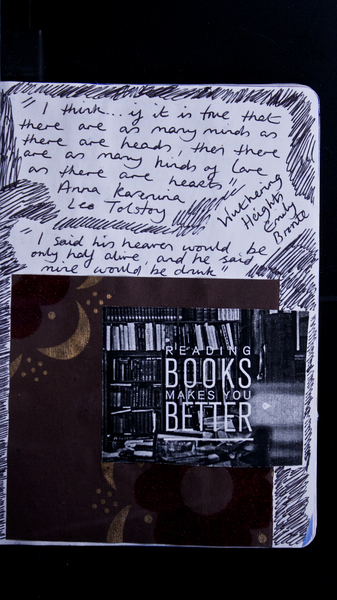 " I think... if it is true that
there are as many minds as
there are heads, then there
are as many kinds of love
as there are hearts"
Anna Karenina
Leo Tolstoy
Wuthering
Heights
Emily
Bronte
" I said his heaven would be
only half alive, and he said
mine would be drunk"
READING
BOOKS
MAKES YOU
BETTER